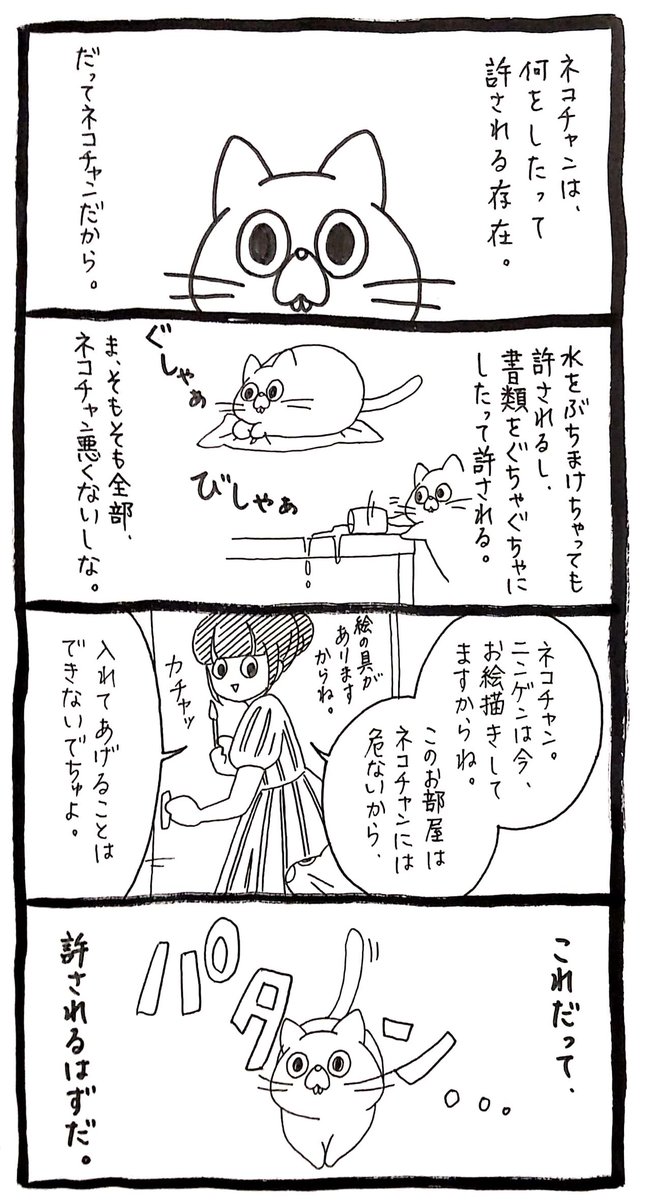 ネコチャンは、
何をしたって
許される存在。
だってネコチャンだから。
水をぶちまけちゃっても
許されるし、
書類をぐちゃぐちゃに
したって許される。
ぐしゃぁ
びしゃぁ
ま、そもそも全部、
ネコチャン悪くないしな。
ネコチャン。
ニンゲンは今、
お絵描きして
ますからね。
このお部屋は
ネコチャンには
危ないから、
絵の具が
あります
からね。
カチャッ
入れてあげることは
できないでちゅよ。
これだって、
パターン...
許されるはずだ。